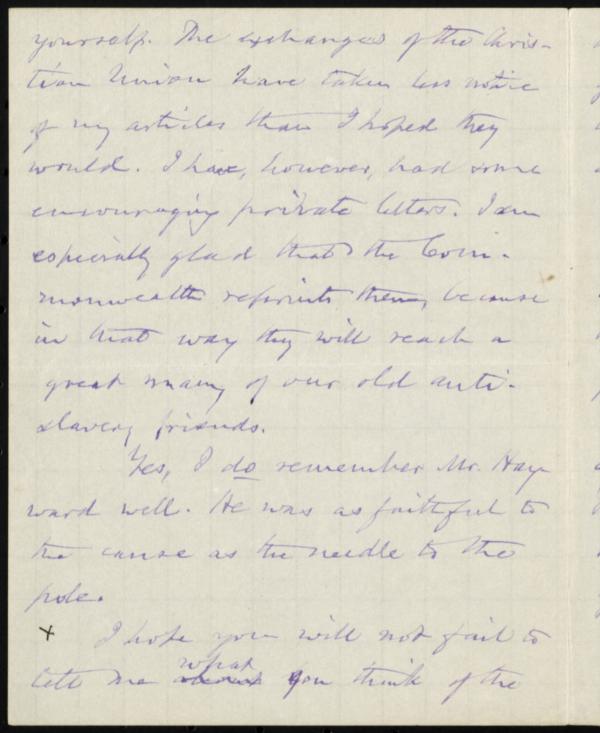 yourself. The exchanges of the Chris-
tian Union have taken less notice
of my articles than I hoped they
would. I have, however, had some
encouraging private letters. I am
especially glad that the Com-
monwealth reprints them, because
in that way they will reach a
great many of our old anti-
slavery friends.
Yes, I do remember Mr. Hay-
ward well. He was as faithful to
the cause as the needle to the
pole.
x I hope you will not fail to
what
tell me you think of the